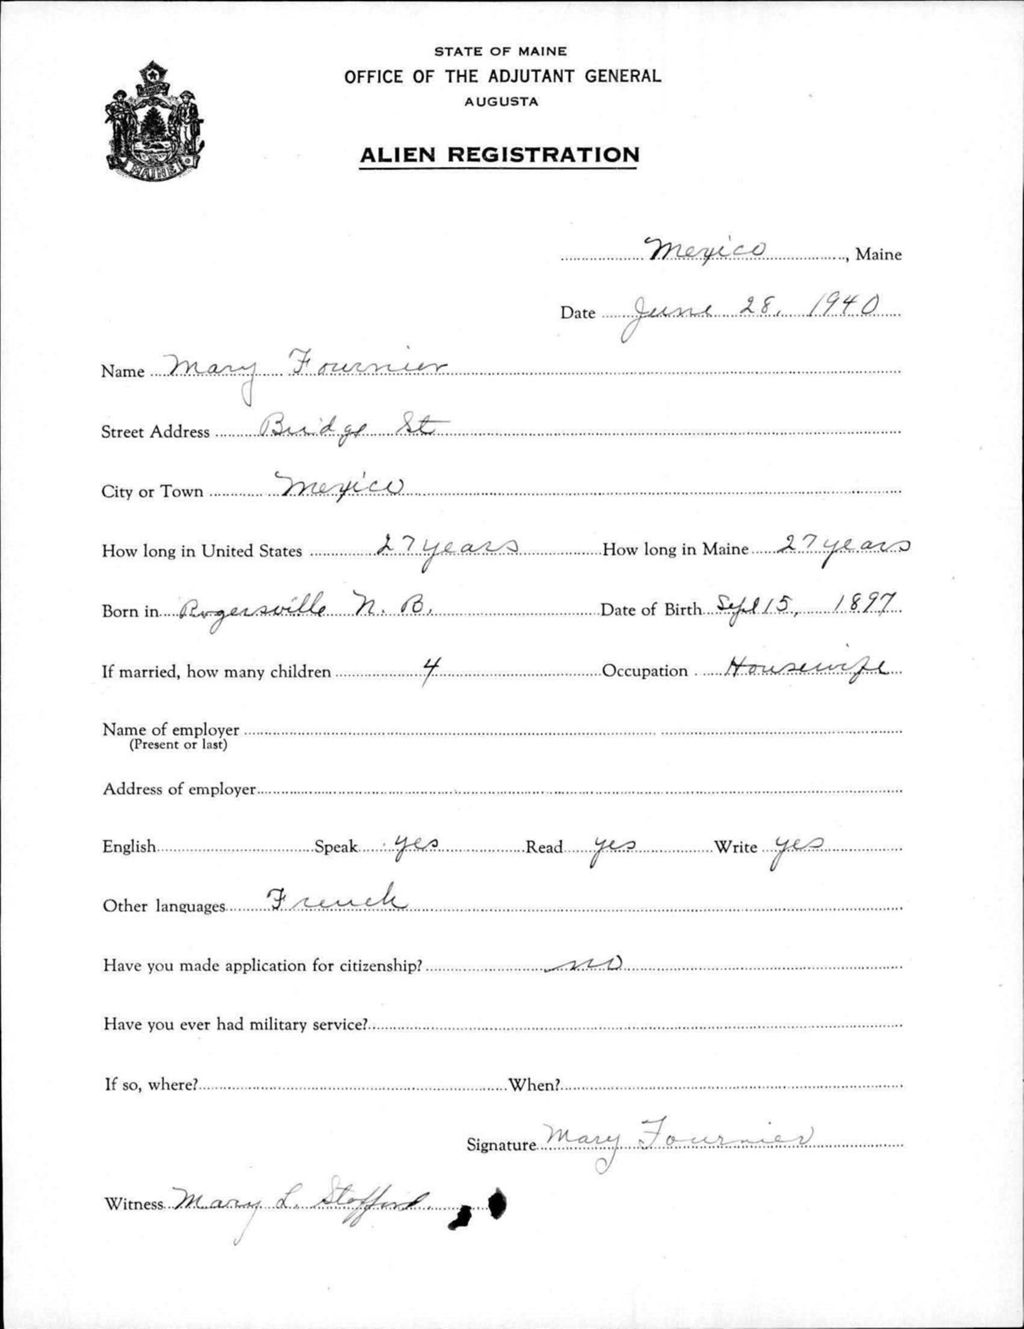 STATE OF MAINE
OFFICE OF THE ADJUTANT GENERAL
AUGUSTA
ALIEN REGISTRATION
MAINE
Mexico, Maine
Date June 28, 1940
Name Mary Fournier
Street Address Bridge St
City or Town Mexico
How long in United States 27 years How long in Maine 27 years
Born in Rogersville N. B. Date of Birth Sept 15, 1897
If married, how many children 4 Occupation Housewife
Name of employer
(Present or last)
Address of employer
English Speak yes Read yes Write yes
Other languages French
Have you made application for citizenship? no
Have you ever had military service?
If so, where? When?
Signature Mary Fournier
Witness Mary L. Stafford